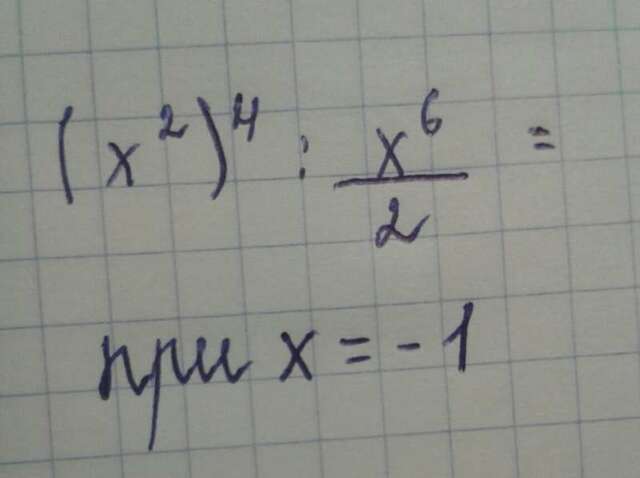 (x²)⁴ : x⁶/2 =
при x = -1